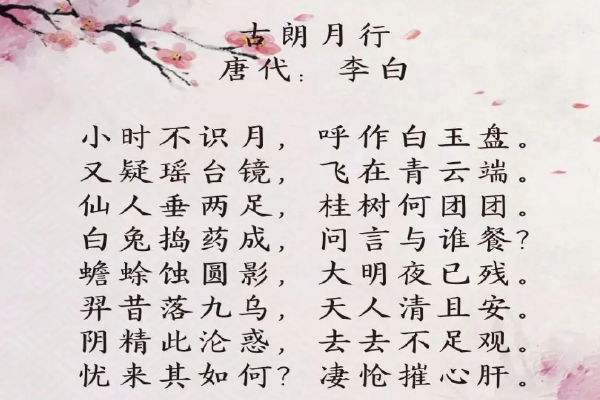 古朗月行
唐代：李白
小时不识月，呼作白玉盘。
又疑瑶台镜，飞在青云端。
仙人垂两足，桂树何团团。
白兔捣药成，问言与谁餐？
蟾蜍蚀圆影，大明夜已残。
羿昔落九乌，天人清且安。
阴精此沦惑，去去不足观。
忧来其如何？凄怆摧心肝。